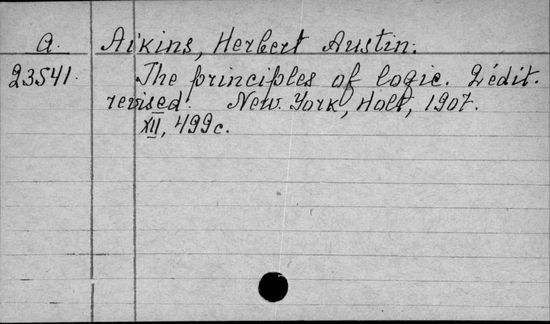 A. Aikins, Herbert Austin.
23541. The principles of logic. 2 édit.
revised. New York, Holt, 1907.
XII, 499 c.